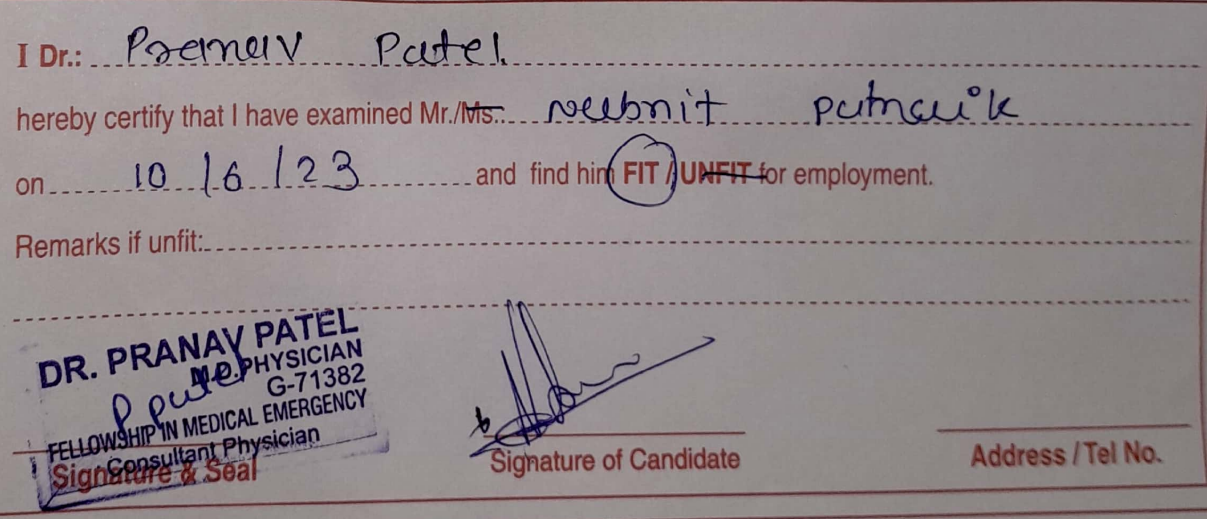 I Dr.: Pranav Patel.
hereby certify that I have examined Mr./Ms. Neebnit Patnaik
on 10/6/23 and find him FIT / UNFIT for employment.
Remarks if unfit:
DR. PRANAV PATEL
M.D. PHYSICIAN
G-71382
P Patel
FELLOWSHIP IN MEDICAL EMERGENCY
Consultant Physician
Signature & Seal
Signature of Candidate
Address / Tel No.